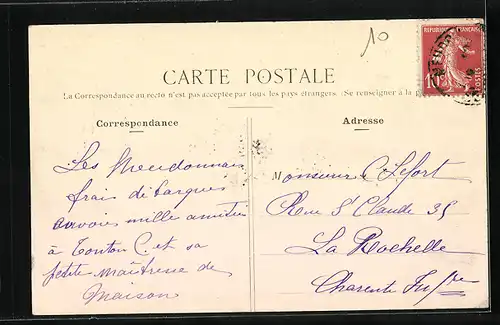 10
RÉPUBLIQUE FRANÇAISE
10
POSTES
CARTE POSTALE
La Correspondance au recto n'est pas acceptée par tous les pays étrangers. (Se renseigner à la
Correspondance
Adresse
Les Meudonnais
frais débarqués
envoie mille amitiés
à Tonton C. et sa
petite maîtresse de
maison
Monsieur C. Lefort
Rue St Claude 35
La Rochelle
Charente Infre